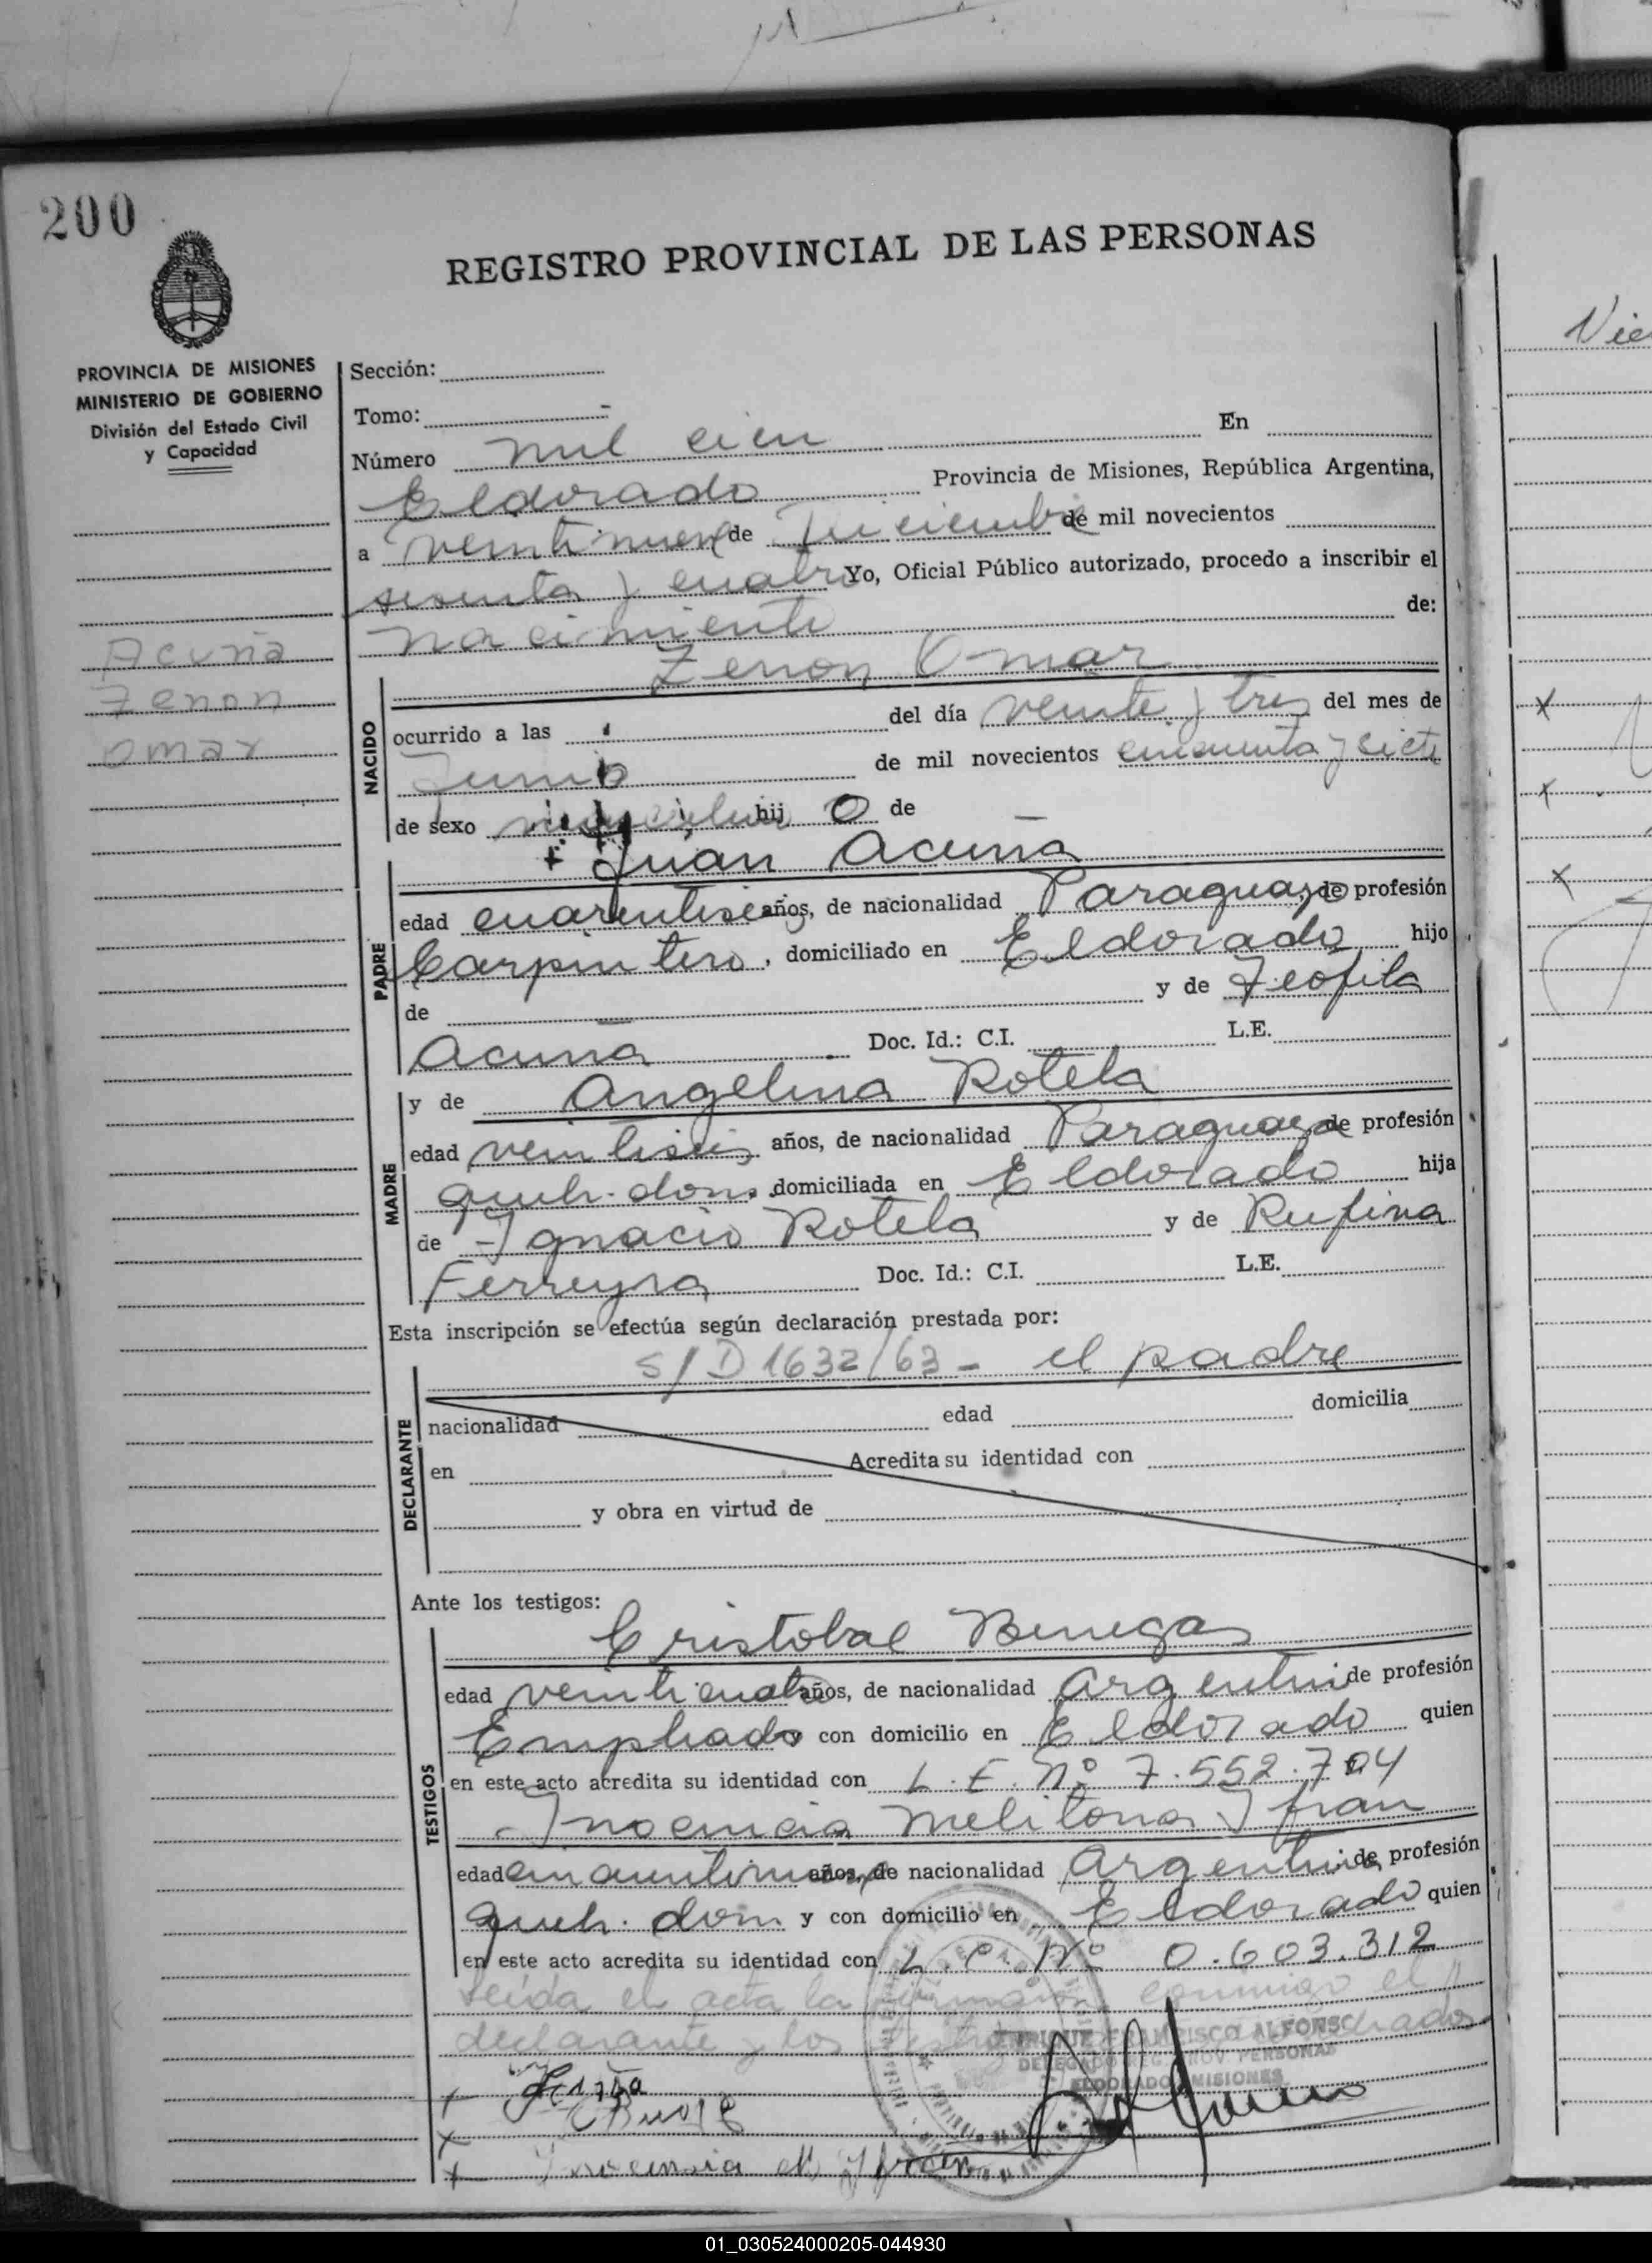 200
REGISTRO PROVINCIAL DE LAS PERSONAS
PROVINCIA DE MISIONES
MINISTERIO DE GOBIERNO
División del Estado Civil
y Capacidad
Acuña
Zenon
Omar
Sección:
Tomo: -
Número mil cien En
Eldorado Provincia de Misiones, República Argentina,
a veintinueve de Diciembre de mil novecientos
sesenta y cuatro Yo, Oficial Público autorizado, procedo a inscribir el
nacimiento de:
Zenon Omar
NACIDO
ocurrido a las del día veinte y tres del mes de
Junio de mil novecientos cincuenta y siete
de sexo masculino hij o de
+ Juan Acuña
PADRE
edad cuarentiseis años, de nacionalidad Paraguayo de profesión
Carpintero, domiciliado en Eldorado hijo
de — y de Teofila
Acuña Doc. Id.: C.I. L.E.
MADRE
y de Angelina Rotela
edad veintiseis años, de nacionalidad Paraguaya de profesión
queh. dom. domiciliada en Eldorado hija
de Ignacio Rotela y de Rufina
Ferreyra Doc. Id.: C.I. L.E.
Esta inscripción se efectúa según declaración prestada por:
S/D 1632/63 - el padre
DECLARANTE
nacionalidad edad domicilia
en Acredita su identidad con
y obra en virtud de
Ante los testigos:
TESTIGOS
Cristobal Benegas
edad veinticuatro años, de nacionalidad Argentino de profesión
Empleado con domicilio en Eldorado quien
en este acto acredita su identidad con L.E. Nº 7.552.704
Inocencia Melitona Ifran
edad años, de nacionalidad Argentina de profesión
queh. dom y con domicilio en Eldorado quien
en este acto acredita su identidad con L.C. Nº 0.603.312
Leida el acta la firman conmigo el
declarante y los testigos
ENRIQUE FRANCISCO ALFONSO
DELEGADO REG. PROV. PERSONAS
ELDORADO MISIONES
+
x
+ Inocencia M Ifran
Vie
x
x
x
01_030524000205-044930